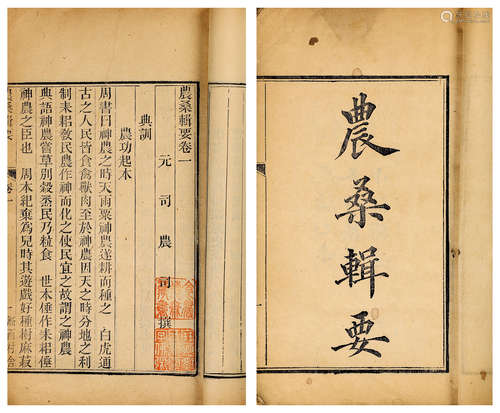 農桑輯要
農桑輯要卷一
元司農司撰
典訓
農功起本
周書曰神農之時天雨粟神農遂耕而種之　白虎通
古之人民皆食禽獸肉至於神農因天之時分地之利
制耒耜敎民農作神而化之使民宜之故謂之神農
典語神農嘗草別穀烝民乃粒食　世本倕作耒耜倕
神農之臣也　周本紀棄為兒時其遊戲好種樹麻菽
卷一